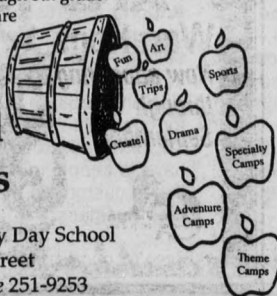 are
Fun
Art
Trips
Sports
Create!
Drama
Specialty
Camps
Adventure
Camps
Theme
Camps
s
y Day School
reet
e 251-9253